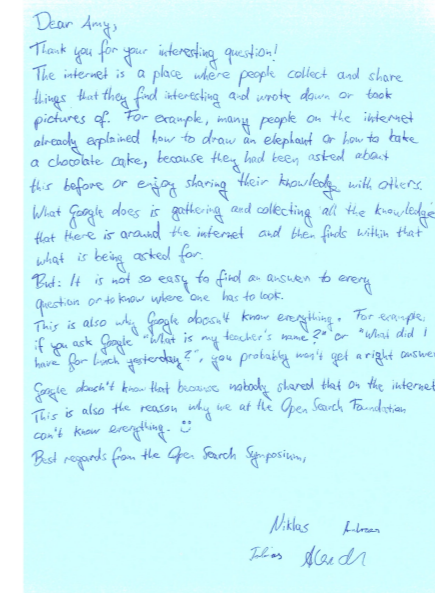 Dear Amy,
Thank you for your interesting question!
The internet is a place where people collect and share
things that they find interesting and wrote down or took
pictures of. For example, many people on the internet
already explained how to draw an elephant or how to bake
a chocolate cake, because they had been asked about
this before or enjoy sharing their knowledge with others.
What Google does is gathering and collecting all the knowledge
that there is around the internet and then finds within that
what is being asked for.
But: It is not so easy to find an answer to every
question or to know where one has to look.
This is also why Google doesn't know everything. For example,
if you ask Google "What is my teacher's name?" or "What did I
have for lunch yesterday?", you probably won't get a right answer
Google doesn't know that because nobody shared that on the internet
This is also the reason why we at the Open Search Foundation
can't know everything. :)
Best regards from the Open Search Symposium,
Niklas
Tobias